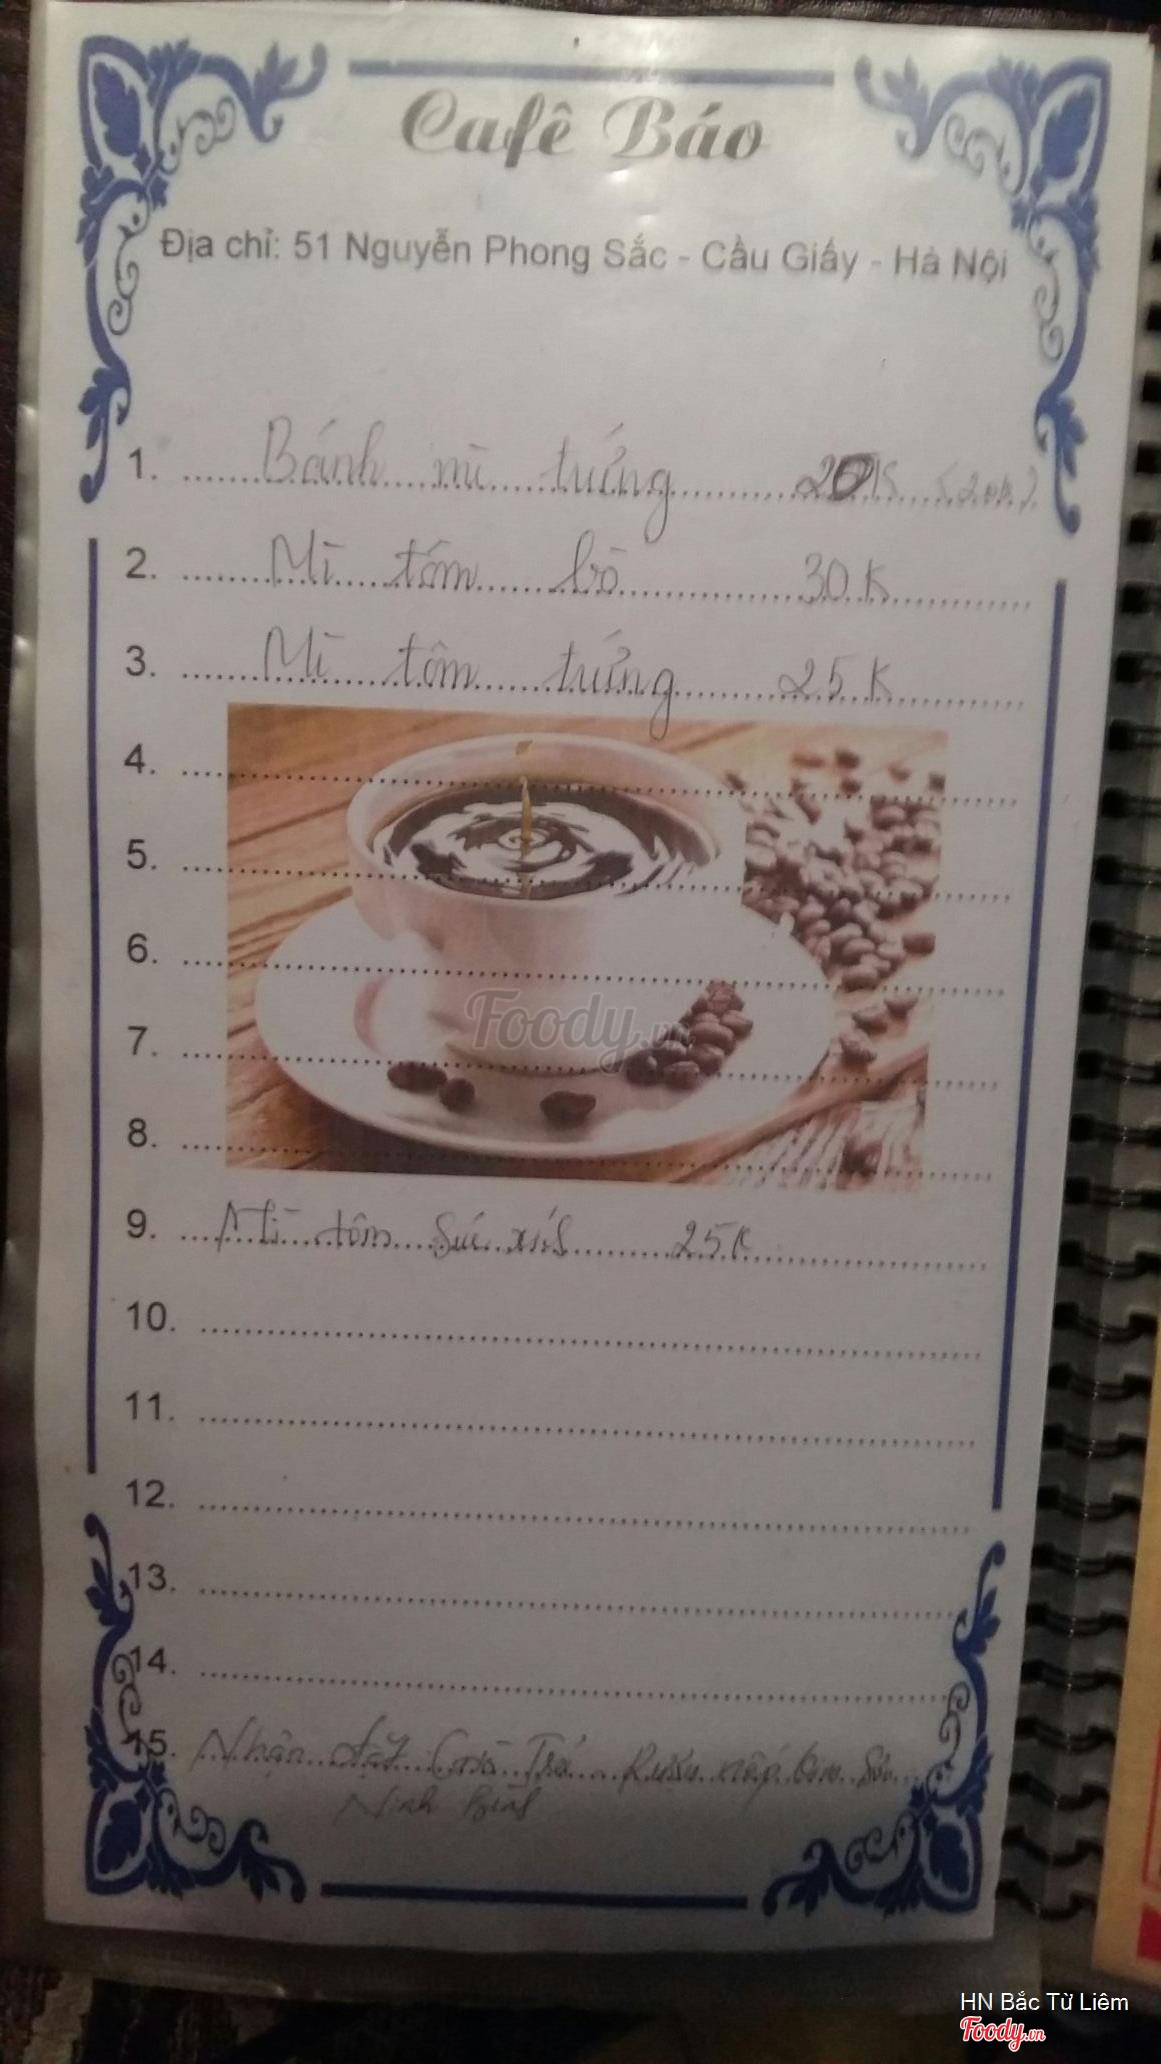 Cafê Báo
Địa chỉ: 51 Nguyễn Phong Sắc - Cầu Giấy - Hà Nội
1. Bánh mì trứng 20K
2. Mì tôm bò 30K
3. Mì tôm trứng 25K
4.
5.
6.
Foody.vn
7.
8.
9. Mì tôm xúc xích 25K
10.
11.
12.
13.
14.
15. Nhận đặt Rượu nếp
Ninh Bình
HN Bắc Từ Liêm
Foody.vn